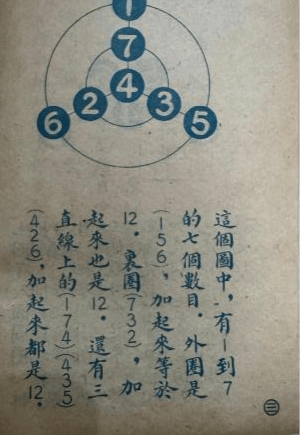 1
7
4
2
3
6
5
這個圖中，有1到7
的七個數目。外圈是
(156)，加起來等於
12。裏圈(732)，加
起來也是12。還有三
直線上的(174)(435)
(426)，加起來都是12。
㊂